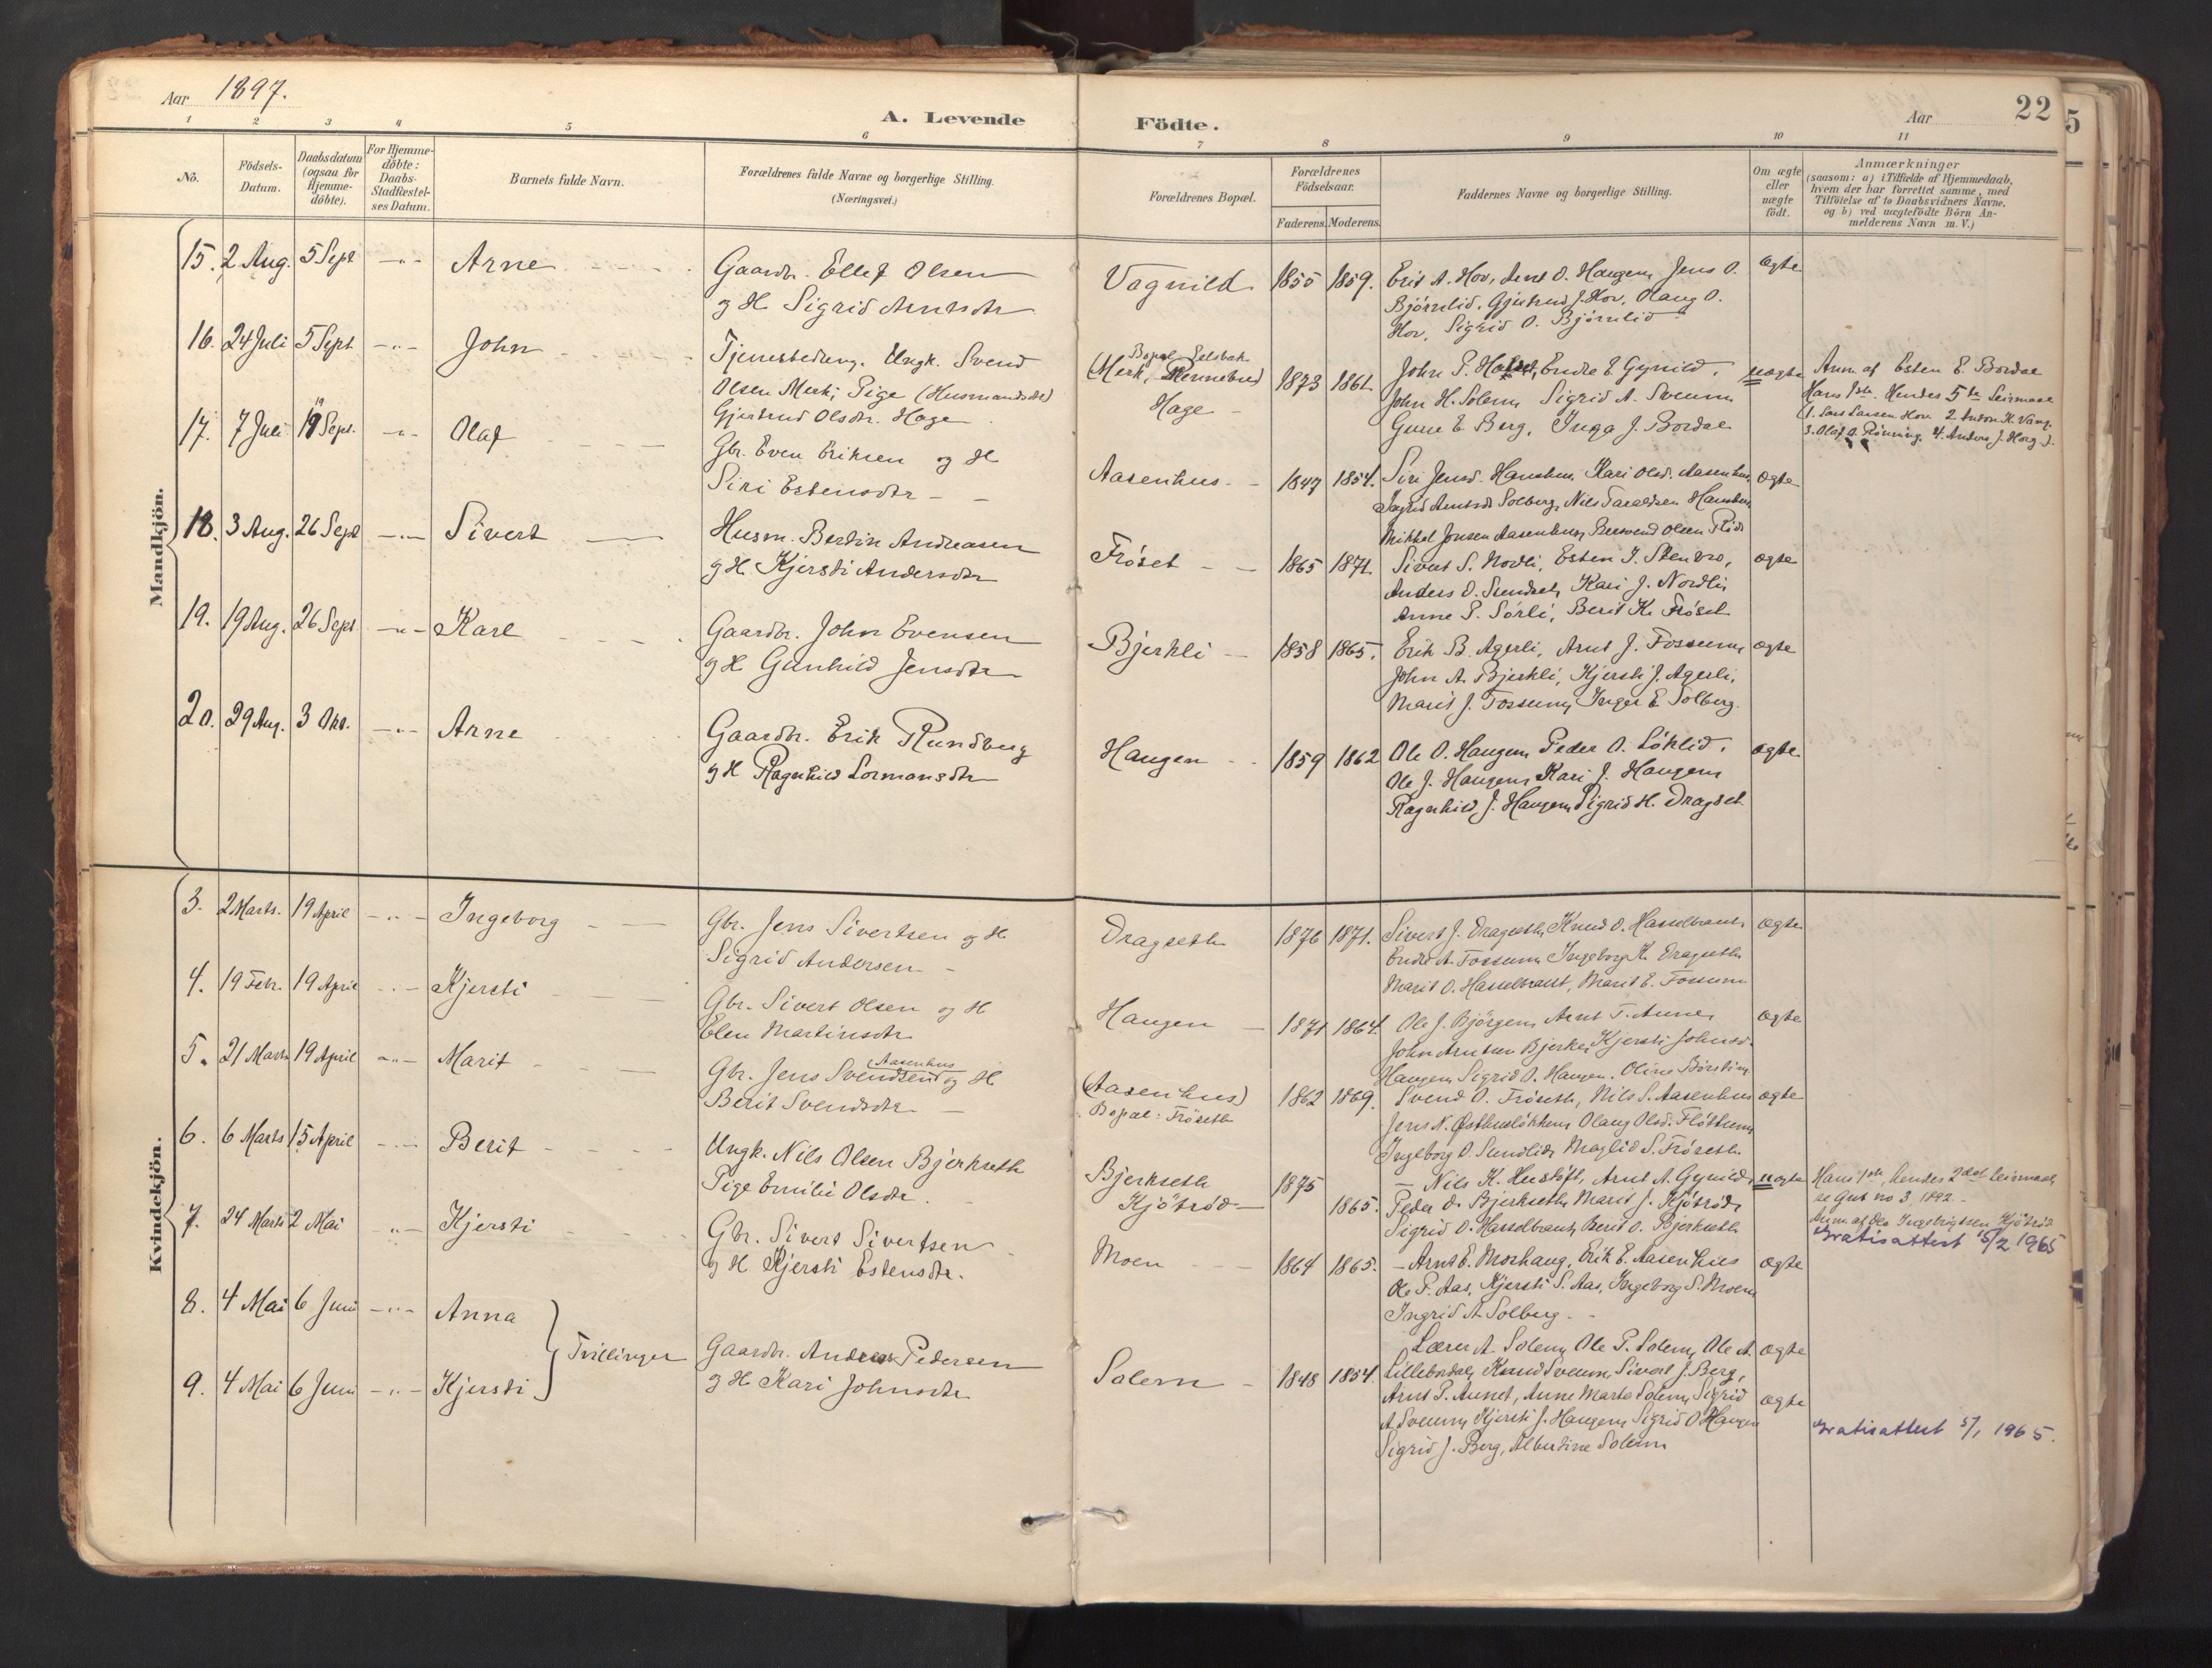 Aar 1897.
A. Levende Födte.
Aar 22
1 2 3 4 5 6 7 8 9 10 11
No.
Födsels-Datum.
Daabsdatum (ogsaa for Hjemme-döbte).
For Hjemme-döbte: Daabs-Stadfæstel-ses Datum.
Barnets fulde Navn.
Forældrenes fulde Navne og borgerlige Stilling.
(Næringsvei.)
Forældrenes Bopæl.
Forældrenes Födselsaar.
Faderens. Moderens.
Faddernes Navne og borgerlige Stilling.
Om ægte eller uægte födt.
Anmærkninger
(saasom: a) i Tilfælde af Hjemmedaab,
hvem der har forrettet samme, med
Tilföielse af to Daabsvidners Navne,
og b) ved uægtefödte Börn An-
melderens Navn m. V.)
Mandkjön.
15. 2 Aug. 5 Sept —"— Arne
Gaardbr. Ellef Olsen
og H Sigrid Arntsdtr
Vognild 1855 1859.
Erik A. Hov, Arnt O. Haugen, Jens O.
Bjørnlid, Gjertrud J. Hov, Olaug O.
Hov, Sigrid O. Bjørnlid
ægte
16. 24 Juli 5 Sept —"— John
Tjenestedreng. Ungk. Svend
Olsen Merk; Pige (Husmandsdtr)
Gjertrud Olsdtr. Hage
Bopæl Selsbak
(Merk, Rennebu)
Hage
1873 1861.
John P. Endre E Gynild,
John H. Solem, Sigrid A. Sveum
Gune E Berg, Inga J. Bordal
uægte
Anm. af Esten E. Bordal
Hans 1ste Hendes 5te Leiermaal
(1. Lars Larsen Hov 2 Anton K. Vang.
3. Olaf O. Rönning. 4. Anders J. Horg
17. 7 Juli 19 Sept. —"— Olaf
Gbr. Even Eriksen og H
Siri Estensdtr
Aasenhus. 1847 1854.
Siri Jensd. Kari Olsd. Aasenhus
Ingrid Arntsdt Solberg, Nils
Mikkel Jonsen Aasenhus, Olsen
ægte
18. 3 Aug. 26 Sept —"— Sivert
Husm. Bertin Andreasen
og H Kjersti Andersdtr
Fröset 1865 1871.
Sivert S. Nordli, Esten J. Stenbro,
Anders O. Sundset, Kari J. Nordli,
Anne P. Sörli, Berit K. Fröset
ægte
19. 19 Aug. 26 Sept —"— Karl
Gaardbr. John Evensen
og H Gunhild Jensdtr
Bjerkli 1858 1865.
Erik B. Agerli, Arnt J. Fossum,
John A. Bjerkli, Kjersti J. Agerli,
Marit J. Fossum, Inger E. Solberg.
ægte
20. 29 Aug. 3 Okt. —"— Arne
Gaardbr. Erik Rundberg
og H Ragnhild Lormansdtr
Haugen 1859 1862
Ole O. Haugen, Peder O. Löklid,
Ole J. Haugen, Kari J. Haugen
Ragnhild J. Haugen, Sigrid H. Dragset
ægte
Kvindekjön.
3. 2 Marts. 19 April —"— Ingeborg
Gbr. Jens Sivertsen og H
Sigrid Andersen
Dragseth 1876 1871.
Sivert J. Dragseth, Knud O. Hasselbrauth
Endre A. Fossum, Ingeborg K. Dragseth
Marit O. Hasselbraut, Marit E. Fossum
ægte
4. 19 Febr. 19 April —"— Kjersti
Gbr. Sivert Olsen og H
Elen Martinsdtr
Haugen 1871 1864.
Ole J. Björgen, Arnt T. Aunet
John Arntsen Bjerke, Kjersti Johnsd.
Haugen, Sigrid O. Haugen, Oline
ægte
5. 21 Marts 19 April —"— Marit
Gbr. Jens Svendsen Aasenhus og H
Berit Svendsdtr
(Aasenhus)
Bopæl: Fröseth
1862 1869.
Svend O. Fröseth, Nils S. Aasenhus
Jens N. Østhuslökken, Olaug Olsd. Flöttum,
Ingeborg O. Sundlid, Magli S. Fröseth
ægte
6. 6 Marts 15 April —"— Berit
Ungk. Nils Olsen Bjerkseth
Pige Emilie Olsdtr.
Bjerkseth
Kjötröd
1875 1865.
— Nils K. Arnt A. Gynild,
Peder O. Bjerkseth, Marit J. Kjötröd,
Sigrid O. Hasselbraut, Berit O. Bjerkseth
uægte
Hans 1ste, hendes 2det Leiermaal,
se Gut no 3 1892.
Anm. af Ole Ingebrigtsen Kjötröd
Gratisattest 15/2 1965
7. 24 Marts 2 Mai —"— Kjersti
Gbr. Sivert Sivertsen
og H Kjersti Estensdtr.
Moen 1864 1865.
— Arnt E. Morhaug, Erik E. Aasenhus
Ole P. Aas, Kjersti S. Aas, Ingeborg S. Moen
Ingrid A Solberg.
ægte
8. 4 Mai 6 Juni —"— Anna
9. 4 Mai 6 Juni —"— Kjersti
Tvillinger
Gaardbr. Anders Pedersen
og H Kari Johnsdtr
Solem 1848 1854.
Lærer A. Solem, Ole P. Solem, Ole A.
Lillebordal, Knud Sveum, Sivert J. Berg,
Arnt P. Aunet, Anne Marta Solem, Sigrid
A Sveum, Kjersti J. Haugen, Sigrid O Haugen
Sigrid J. Berg, Albertine Solem
ægte
ægte
Gratisattest 5/1 1965.